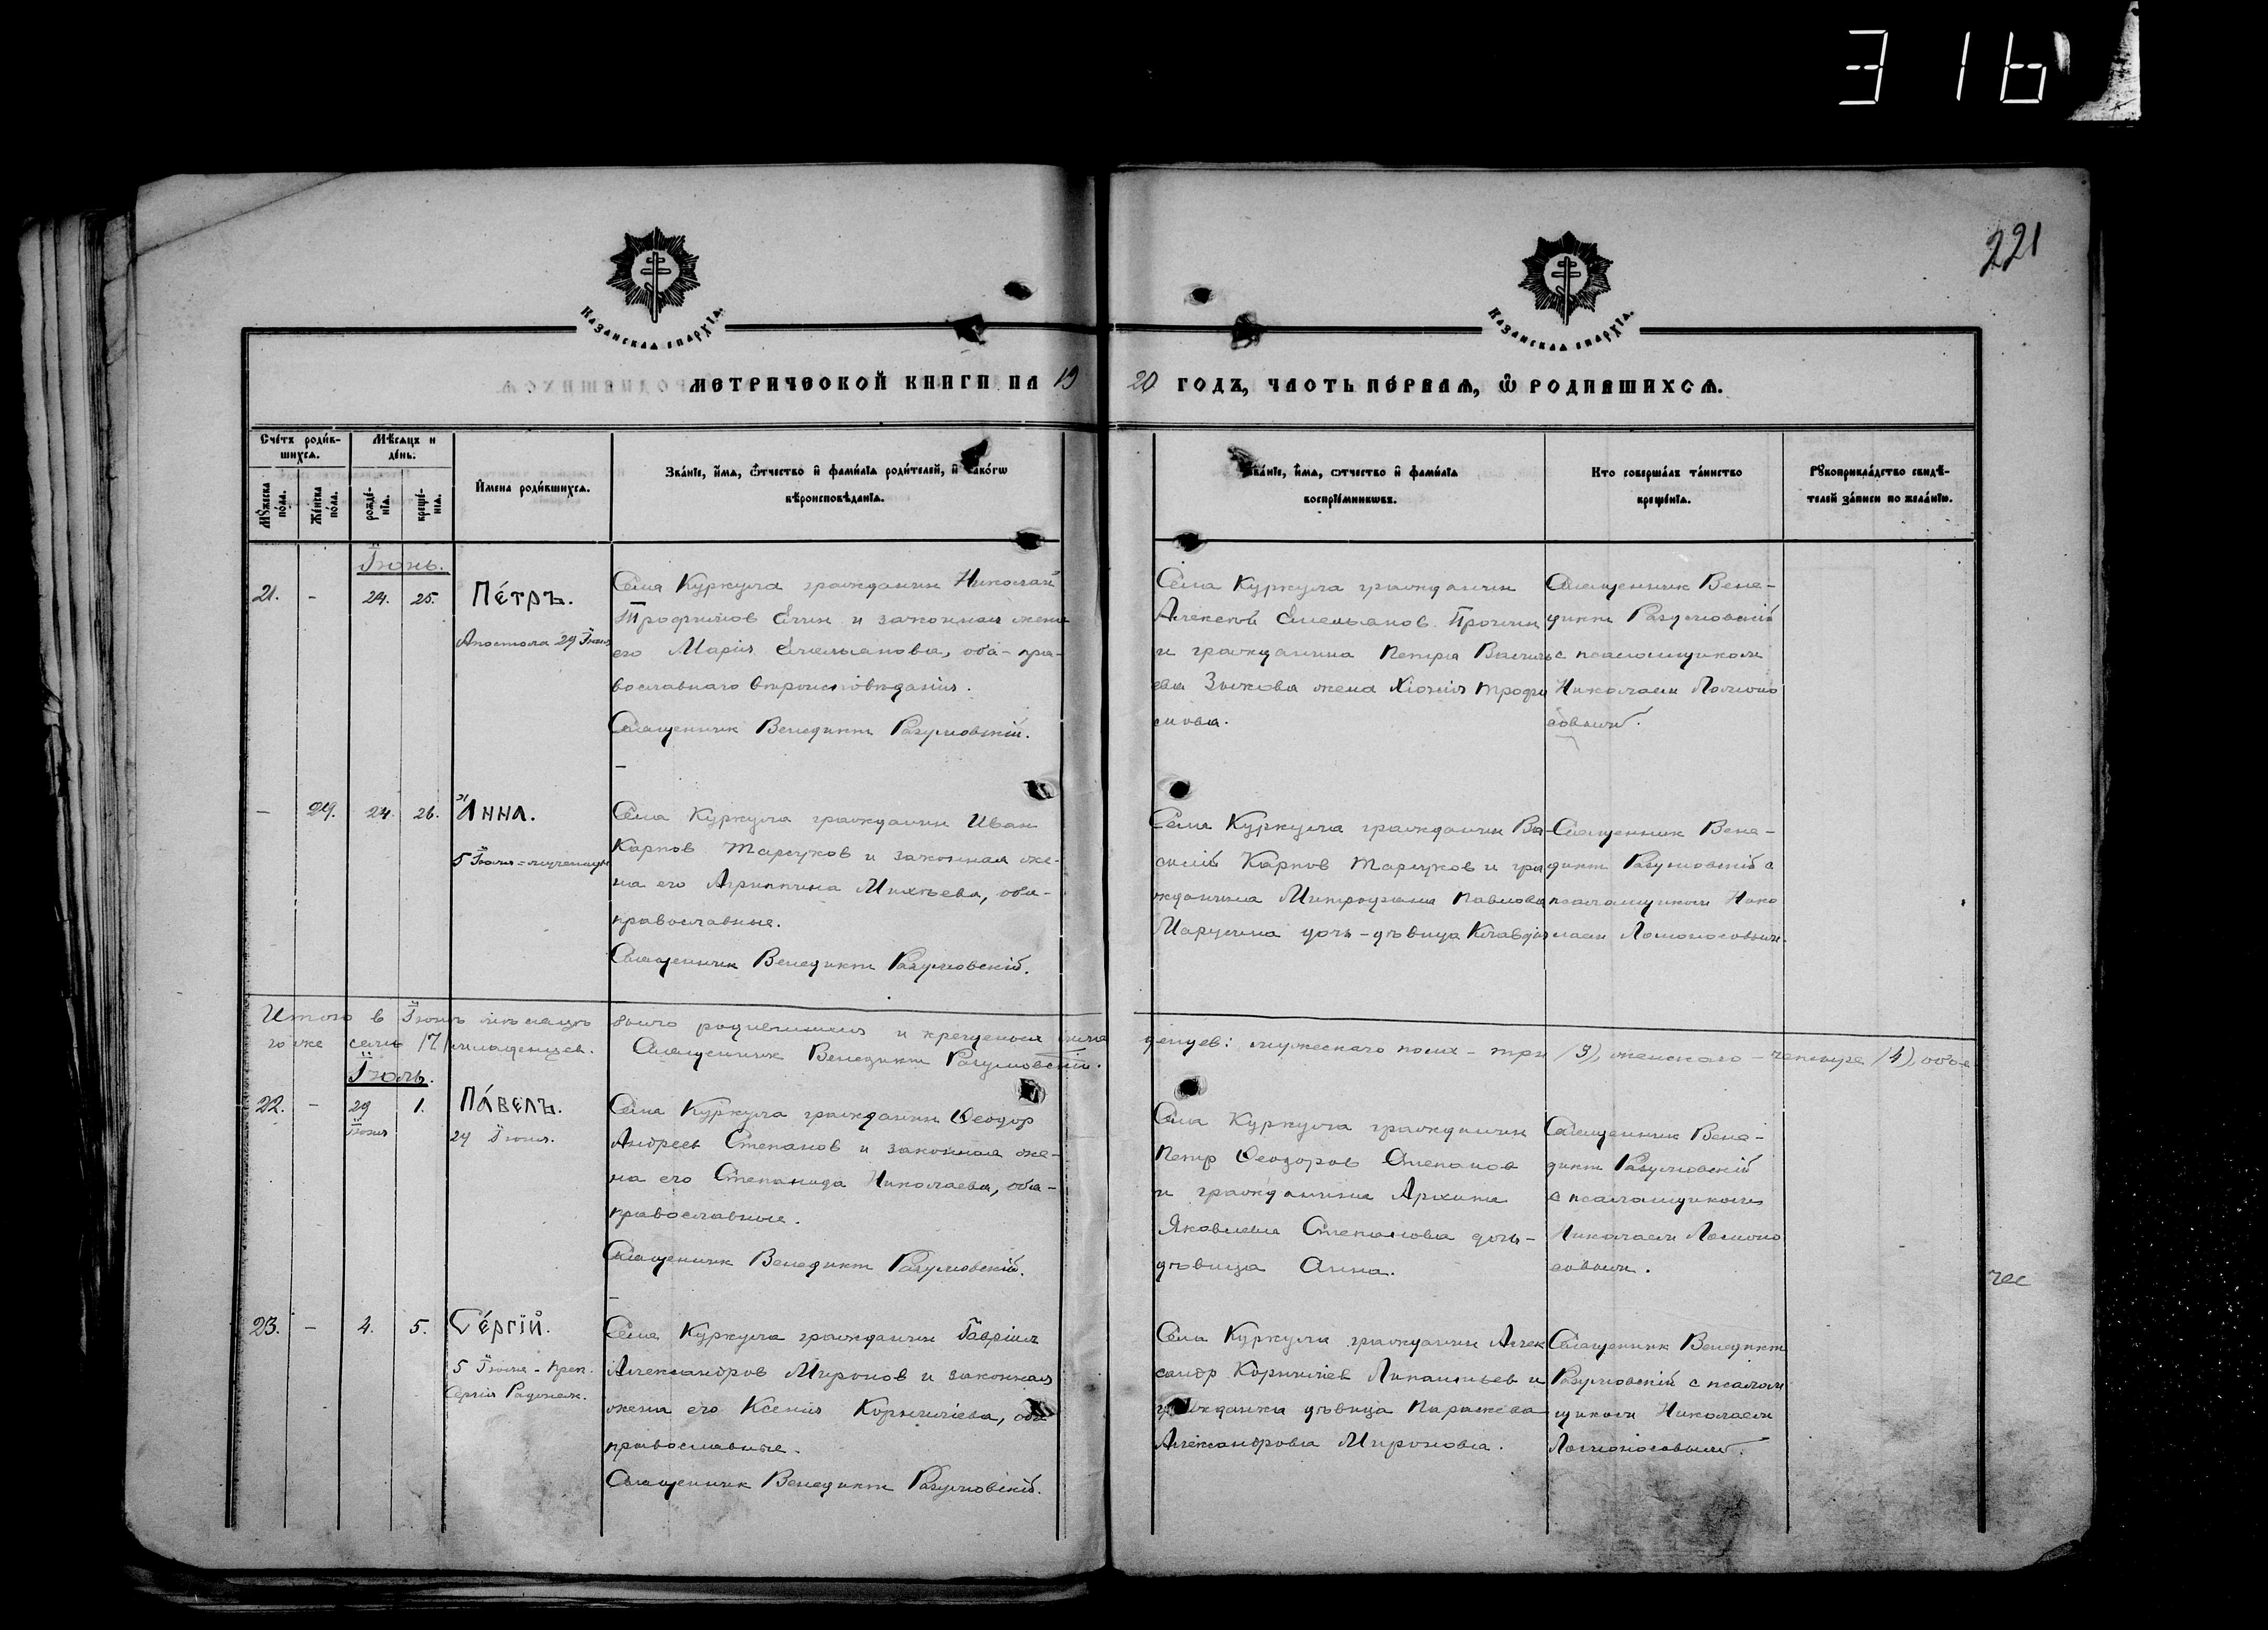 316
221
КАЗАНСКАѦ ЕПАРХЇѦ.
КАЗАНСКАѦ ЕПАРХЇѦ.
МЕТРИЧЕСКОЙ КНИГИ НА 19
20 ГОДЪ, ЧАСТЬ ПЕРВАѦ, Ѿ РОДИВШИХСѦ.
Сче́тъ роди́в-
шихсѧ.
Мѣ́сѧцъ и
де́нь.
Мꙋ́жеска
по́ла.
Же́нска
по́ла.
рожде́-
нїѧ.
креще́-
нїѧ.
И҆мена роди́вшихсѧ.
Зва́нїе, и҆́мѧ, ѻ҆́тчество и҆ фами́лїѧ роди́телей, и҆ како́гѡ
вѣроисповѣ́данїѧ.
Зва́нїе, и҆́мѧ, ѻ҆тчество и҆ фами́лїѧ
воспрїе́мникѡвъ.
Кто соверша́лъ та́инство
креще́нїѧ.
Рꙋкоприкла́дство свидѣ́-
телей за́писи по жела́нїю.
Їюнь.
21. - 24. 25. Пе́тръ.
Апостола 29 Їюня
Села Куркула гражданин Николай
Трофимов Елин и законная жена
его Марія Емельянова, оба - пра-
вославнаго вѣроисповѣданія.
Священник Венедикт Разумовскій.
Села Куркула гражданин
Алексѣй Емельянов
и гражданина Петра Василь
ева Зыкова жена Трофи
мова.
Священник Вене-
дикт Разумовскій
с псаломщиком
Николаем Ломоно
совым.
- 24. 26. А҆́нна.
5 Їюля - мученицы
Села Куркула гражданин Иван
Карпов Тарсуков и законная же-
на его Агриппина Михѣева, оба -
православные.
Священник Венедикт Разумовскій.
Села Куркула гражданин Ва-
силій Карпов Тарсуков и гра
жданина Митрофана Павлова
дочь - дѣвица Клавдія
Священник Вене-
дикт Разумовскій с
псаломщиком Нико
лаем Ломоносовым.
Итого в Їюнѣ мѣсяцѣ было родившихся и крещеных младенцев: мужескаго пола - три (3), женскаго - четыре (4), обое
го же семь (7) младенцев. Священник Венедикт Разумовскій.
Їюль.
22. - 29 1. Па́велъ.
Їюня
29 Їюня.
Села Куркула гражданин Ѳеодор
Андреев Степанов и законная же-
на его Степанида Николаева, оба -
православные.
Священник Венедикт Разумовскій.
Села Куркула гражданин
Петр Ѳеодоров Степанов
и гражданина Архипа
Яковлева Степанова дочь -
дѣвица Анна.
Священник Вене-
дикт Разумовскій
с псаломщиком
Николаем Ломоно
совым.
23. - 4. 5. Се́ргїй.
5 Їюля - преп.
Сергія Радонеж.
Села Куркула гражданин Гавріил
Александров Миронов и законная
жена его Ксенія Корниліева, оба
православные.
Священник Венедикт Разумовскій.
Села Куркула гражданин Алек
сандр Корниліев и
гражданка дѣвица Параскева
Александрова Миронова.
Священник Венедикт
Разумовскій с псалом
щиком Николаем
Ломоносовым.